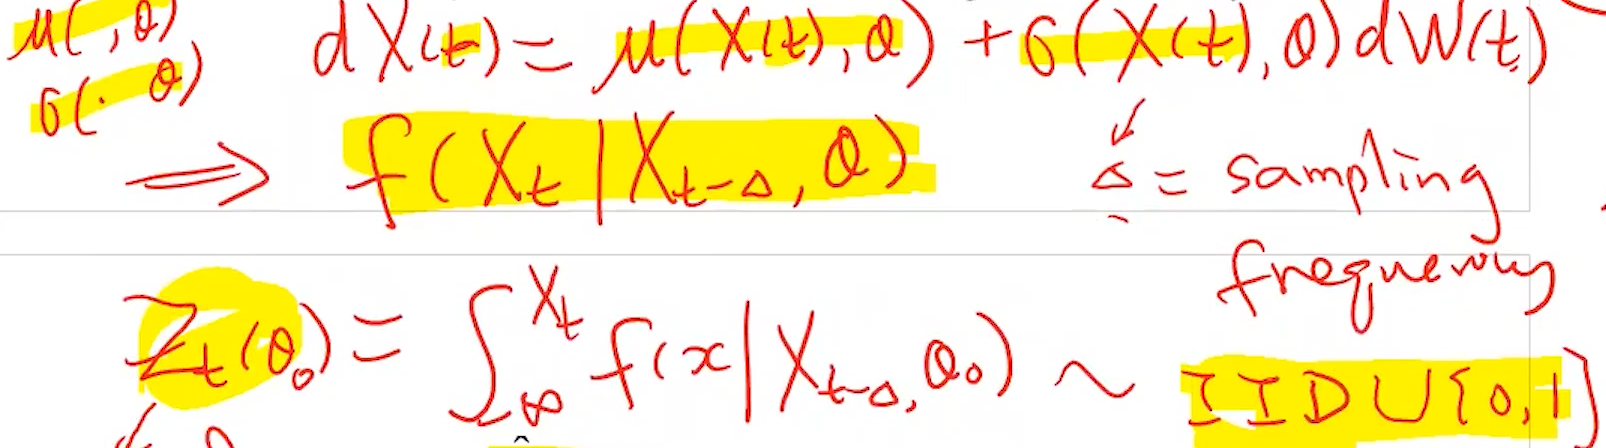 μ( , θ) dX(t) = μ(X(t), θ) + σ(X(t), θ) dW(t)
σ(· θ)
⟹ f(X_t | X_{t-Δ}, θ) Δ = sampling
frequency
Z_t(θ_0) = ∫_{-∞}^{X_t} f(x | X_{t-Δ}, θ_0) ~ IID U[0,1]